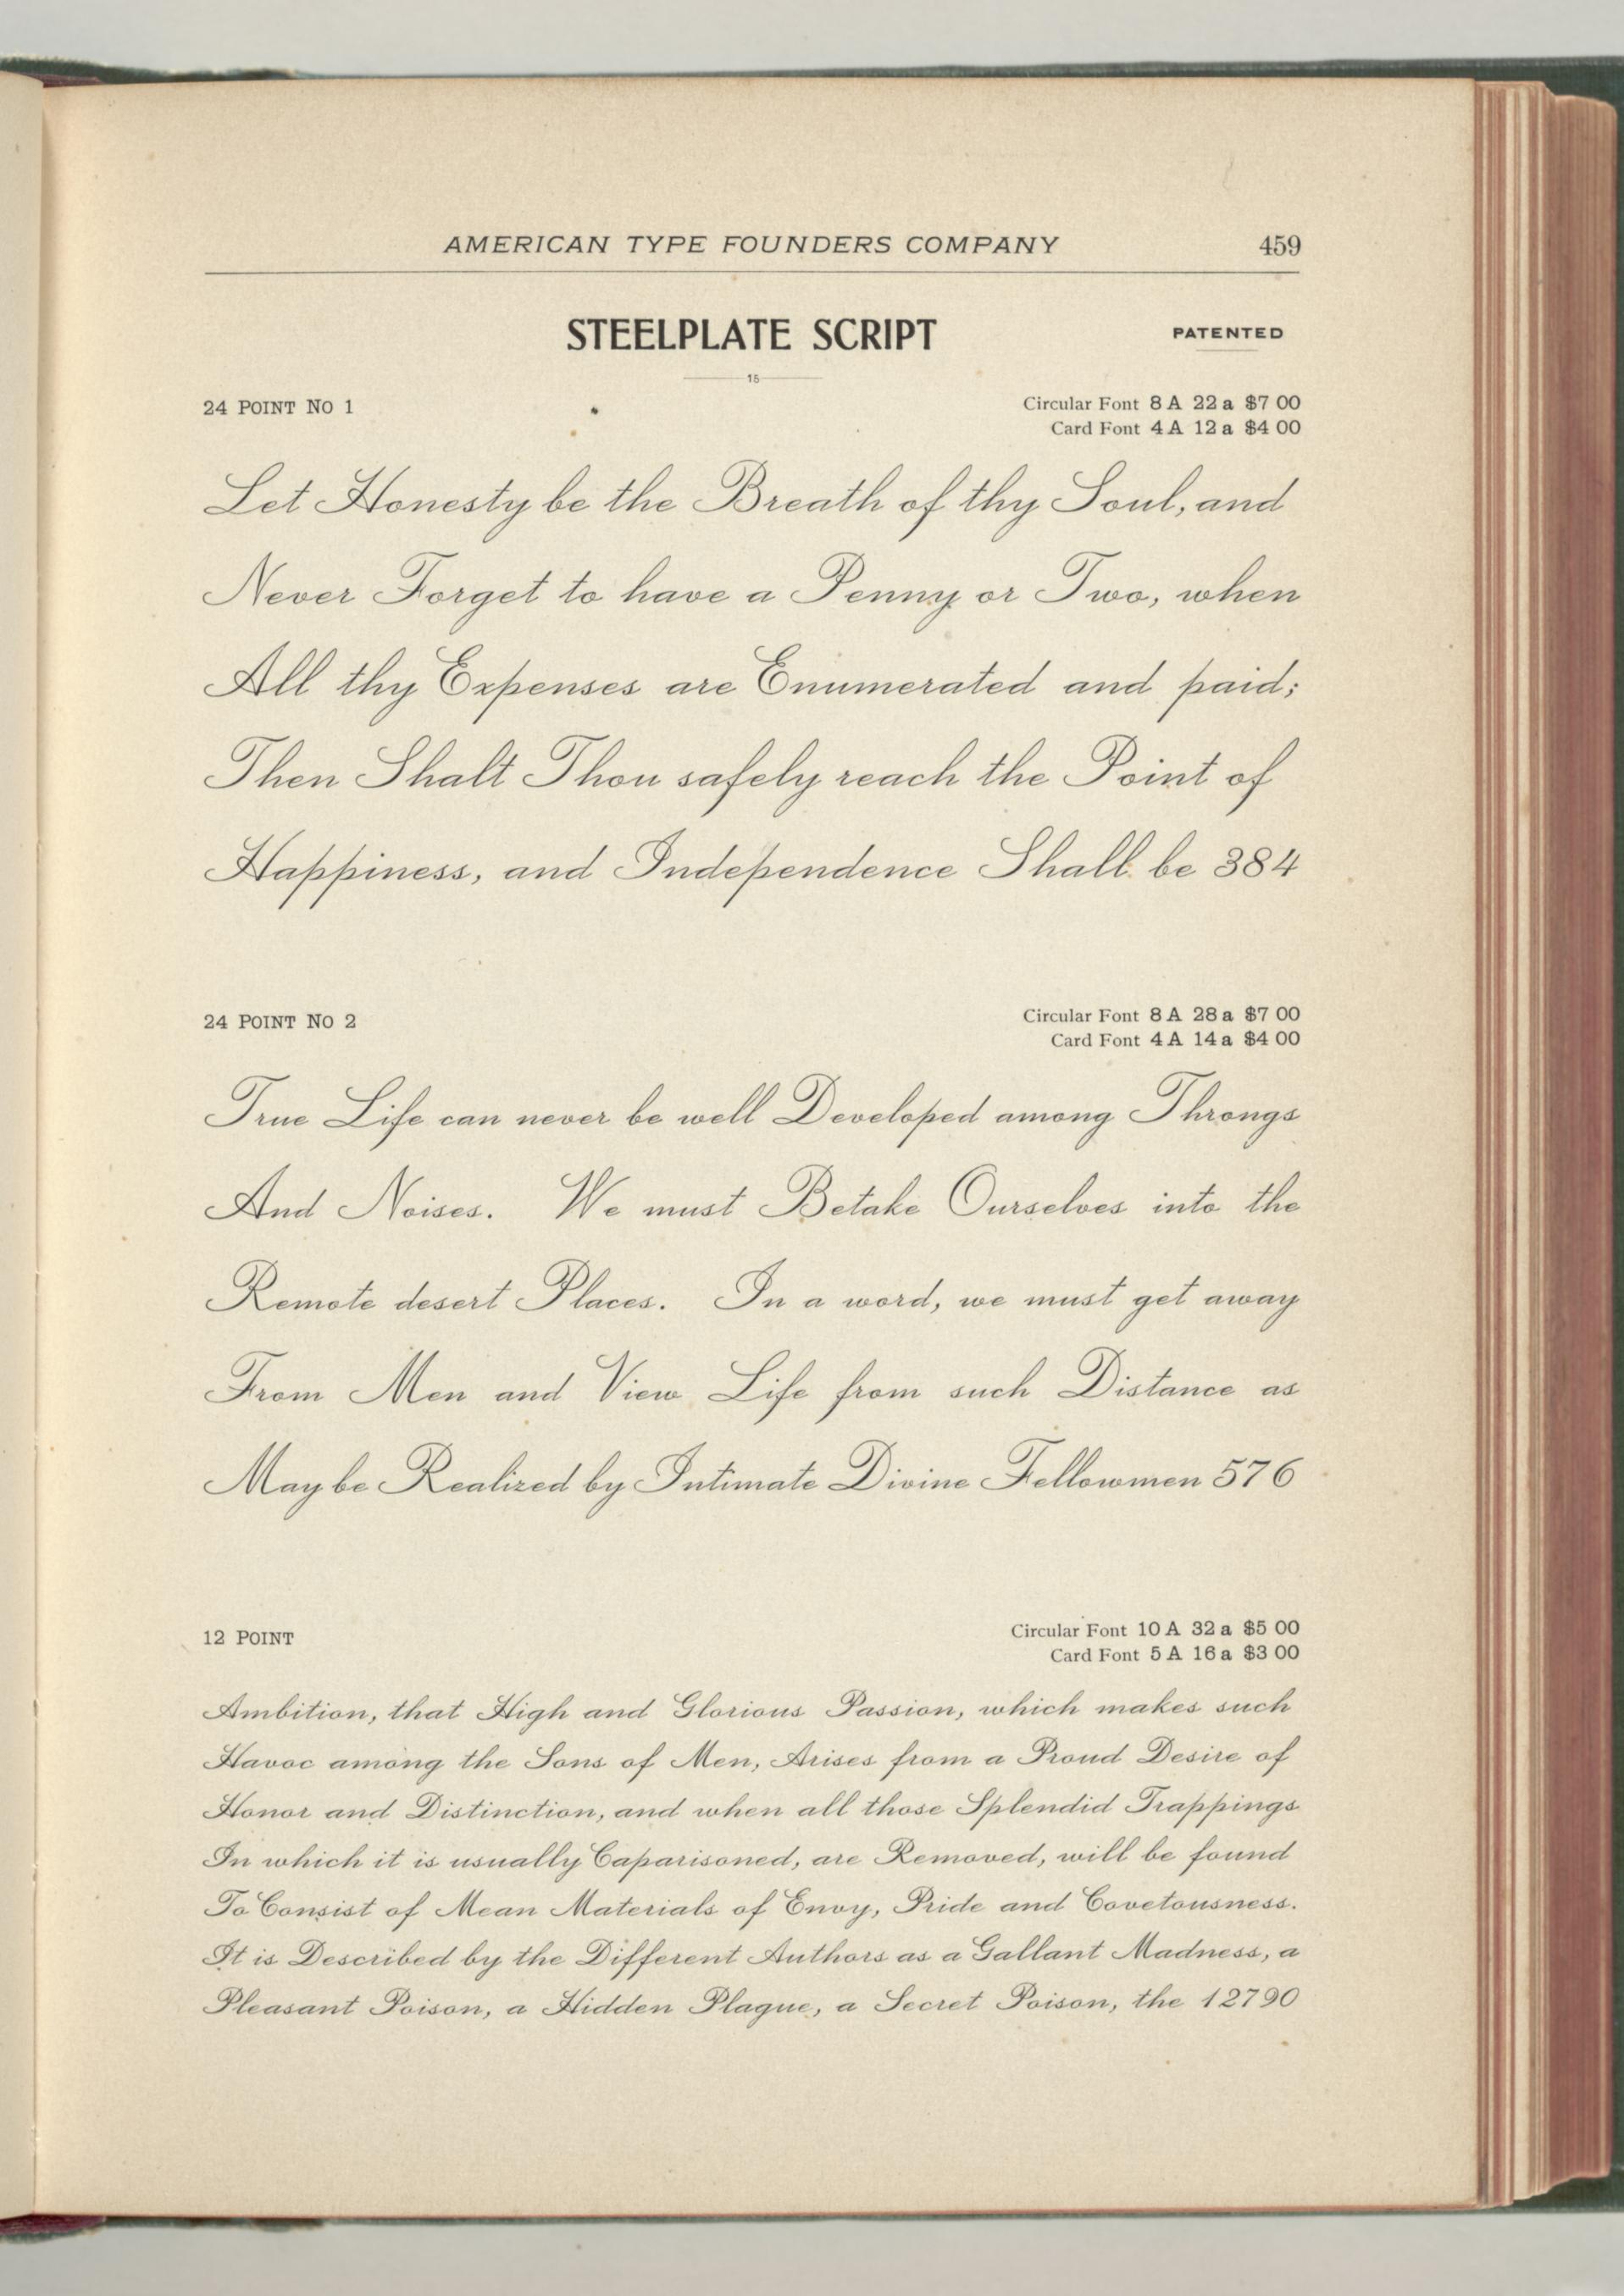 AMERICAN TYPE FOUNDERS COMPANY 459
STEELPLATE SCRIPT PATENTED
15
24 POINT NO 1
Circular Font 8 A 22 a $7 00
Card Font 4 A 12 a $4 00
Let Honesty be the Breath of thy Soul, and
Never Forget to have a Penny or Two, when
All thy Expenses are Enumerated and paid;
Then Shalt Thou safely reach the Point of
Happiness, and Independence Shall be 384
24 POINT NO 2
Circular Font 8 A 28 a $7 00
Card Font 4 A 14 a $4 00
True Life can never be well Developed among Throngs
And Noises. We must Betake Ourselves into the
Remote desert Places. In a word, we must get away
From Men and View Life from such Distance as
May be Realized by Intimate Divine Fellowmen 576
12 POINT
Circular Font 10 A 32 a $5 00
Card Font 5 A 16 a $3 00
Ambition, that High and Glorious Passion, which makes such
Havoc among the Sons of Men, Arises from a Proud Desire of
Honor and Distinction, and when all those Splendid Trappings
In which it is usually Caparisoned, are Removed, will be found
To Consist of Mean Materials of Envy, Pride and Covetousness.
It is Described by the Different Authors as a Gallant Madness, a
Pleasant Poison, a Hidden Plague, a Secret Poison, the 12790